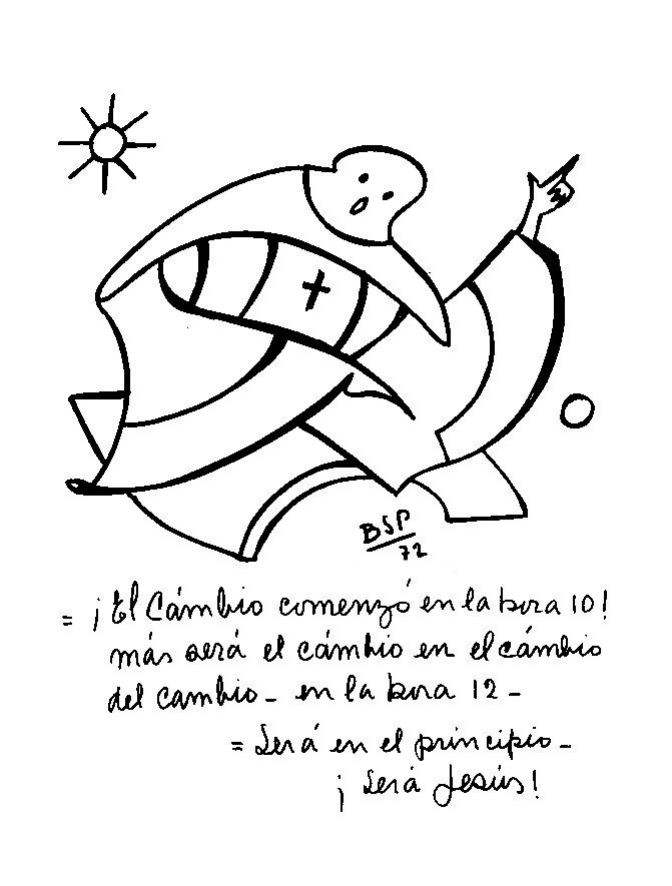 BSP
72
= ¡El Cámbio comenzó en la hora 10!
más será el cámbio en el cámbio
del cambio - en la hora 12 -
= Será en el principio -
¡Será Jesús!